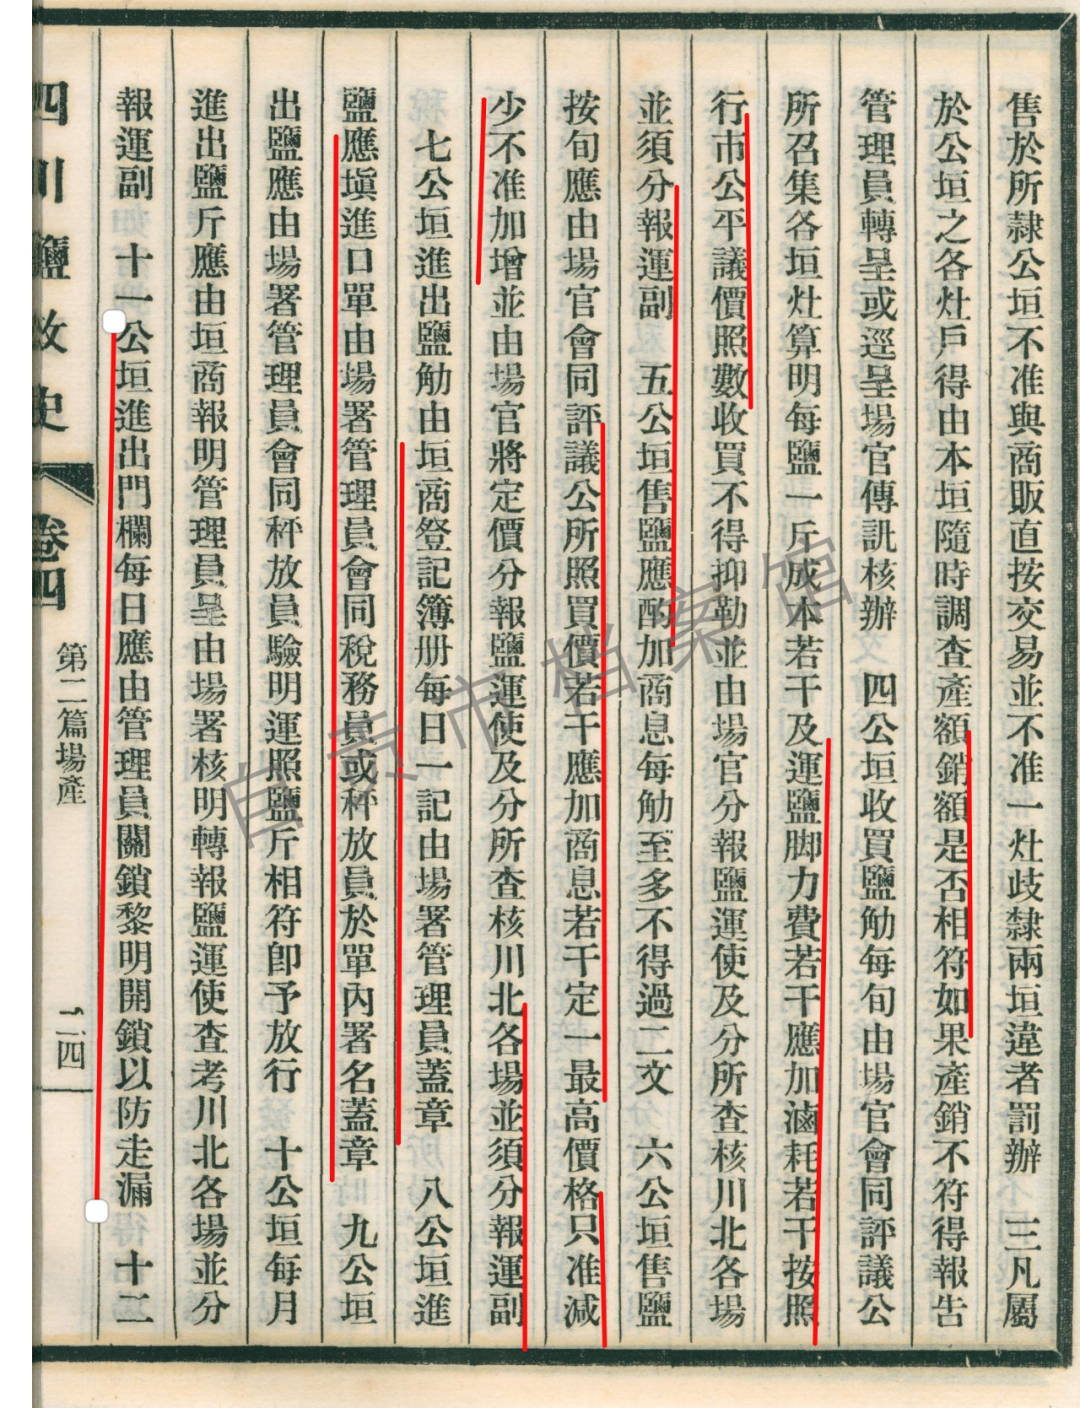 售於所隷公垣不准與商販直按交易並不准一灶歧隸兩垣違者罰辦　三凡屬
於公垣之各灶戶得由本垣隨時調查產額銷額是否相符如果產銷不符得報告
管理員轉呈或逕呈場官傳訊核辦　四公垣收買鹽觔每旬由場官會同評議公
所召集各垣灶算明每鹽一斤成本若干及運鹽脚力費若干應加滷耗若干按照
行市公平議價照數收買不得抑勒並由場官分報鹽運使及分所查核川北各場
並須分報運副　五公垣售鹽應酌加商息每觔至多不得過二文　六公垣售鹽
按旬應由場官會同評議公所照買價若干應加商息若干定一最高價格只准減
少不准加增並由場官將定價分報鹽運使及分所查核川北各場並須分報運副
七公垣進出鹽觔由垣商登記簿册每日一記由場署管理員蓋章　八公垣進
鹽應塡進口單由場署管理員會同稅務員或秤放員於單內署名蓋章　九公垣
出鹽應由場署管理員會同秤放員驗明運照鹽斤相符卽予放行　十公垣每月
進出鹽斤應由垣商報明管理員呈由場署核明轉報鹽運使查考川北各場並分
報運副　十一公垣進出門欄每日應由管理員關鎖黎明開鎖以防走漏　十二
四川鹽政史　卷四　第二篇場產　二四
自贡市档案馆